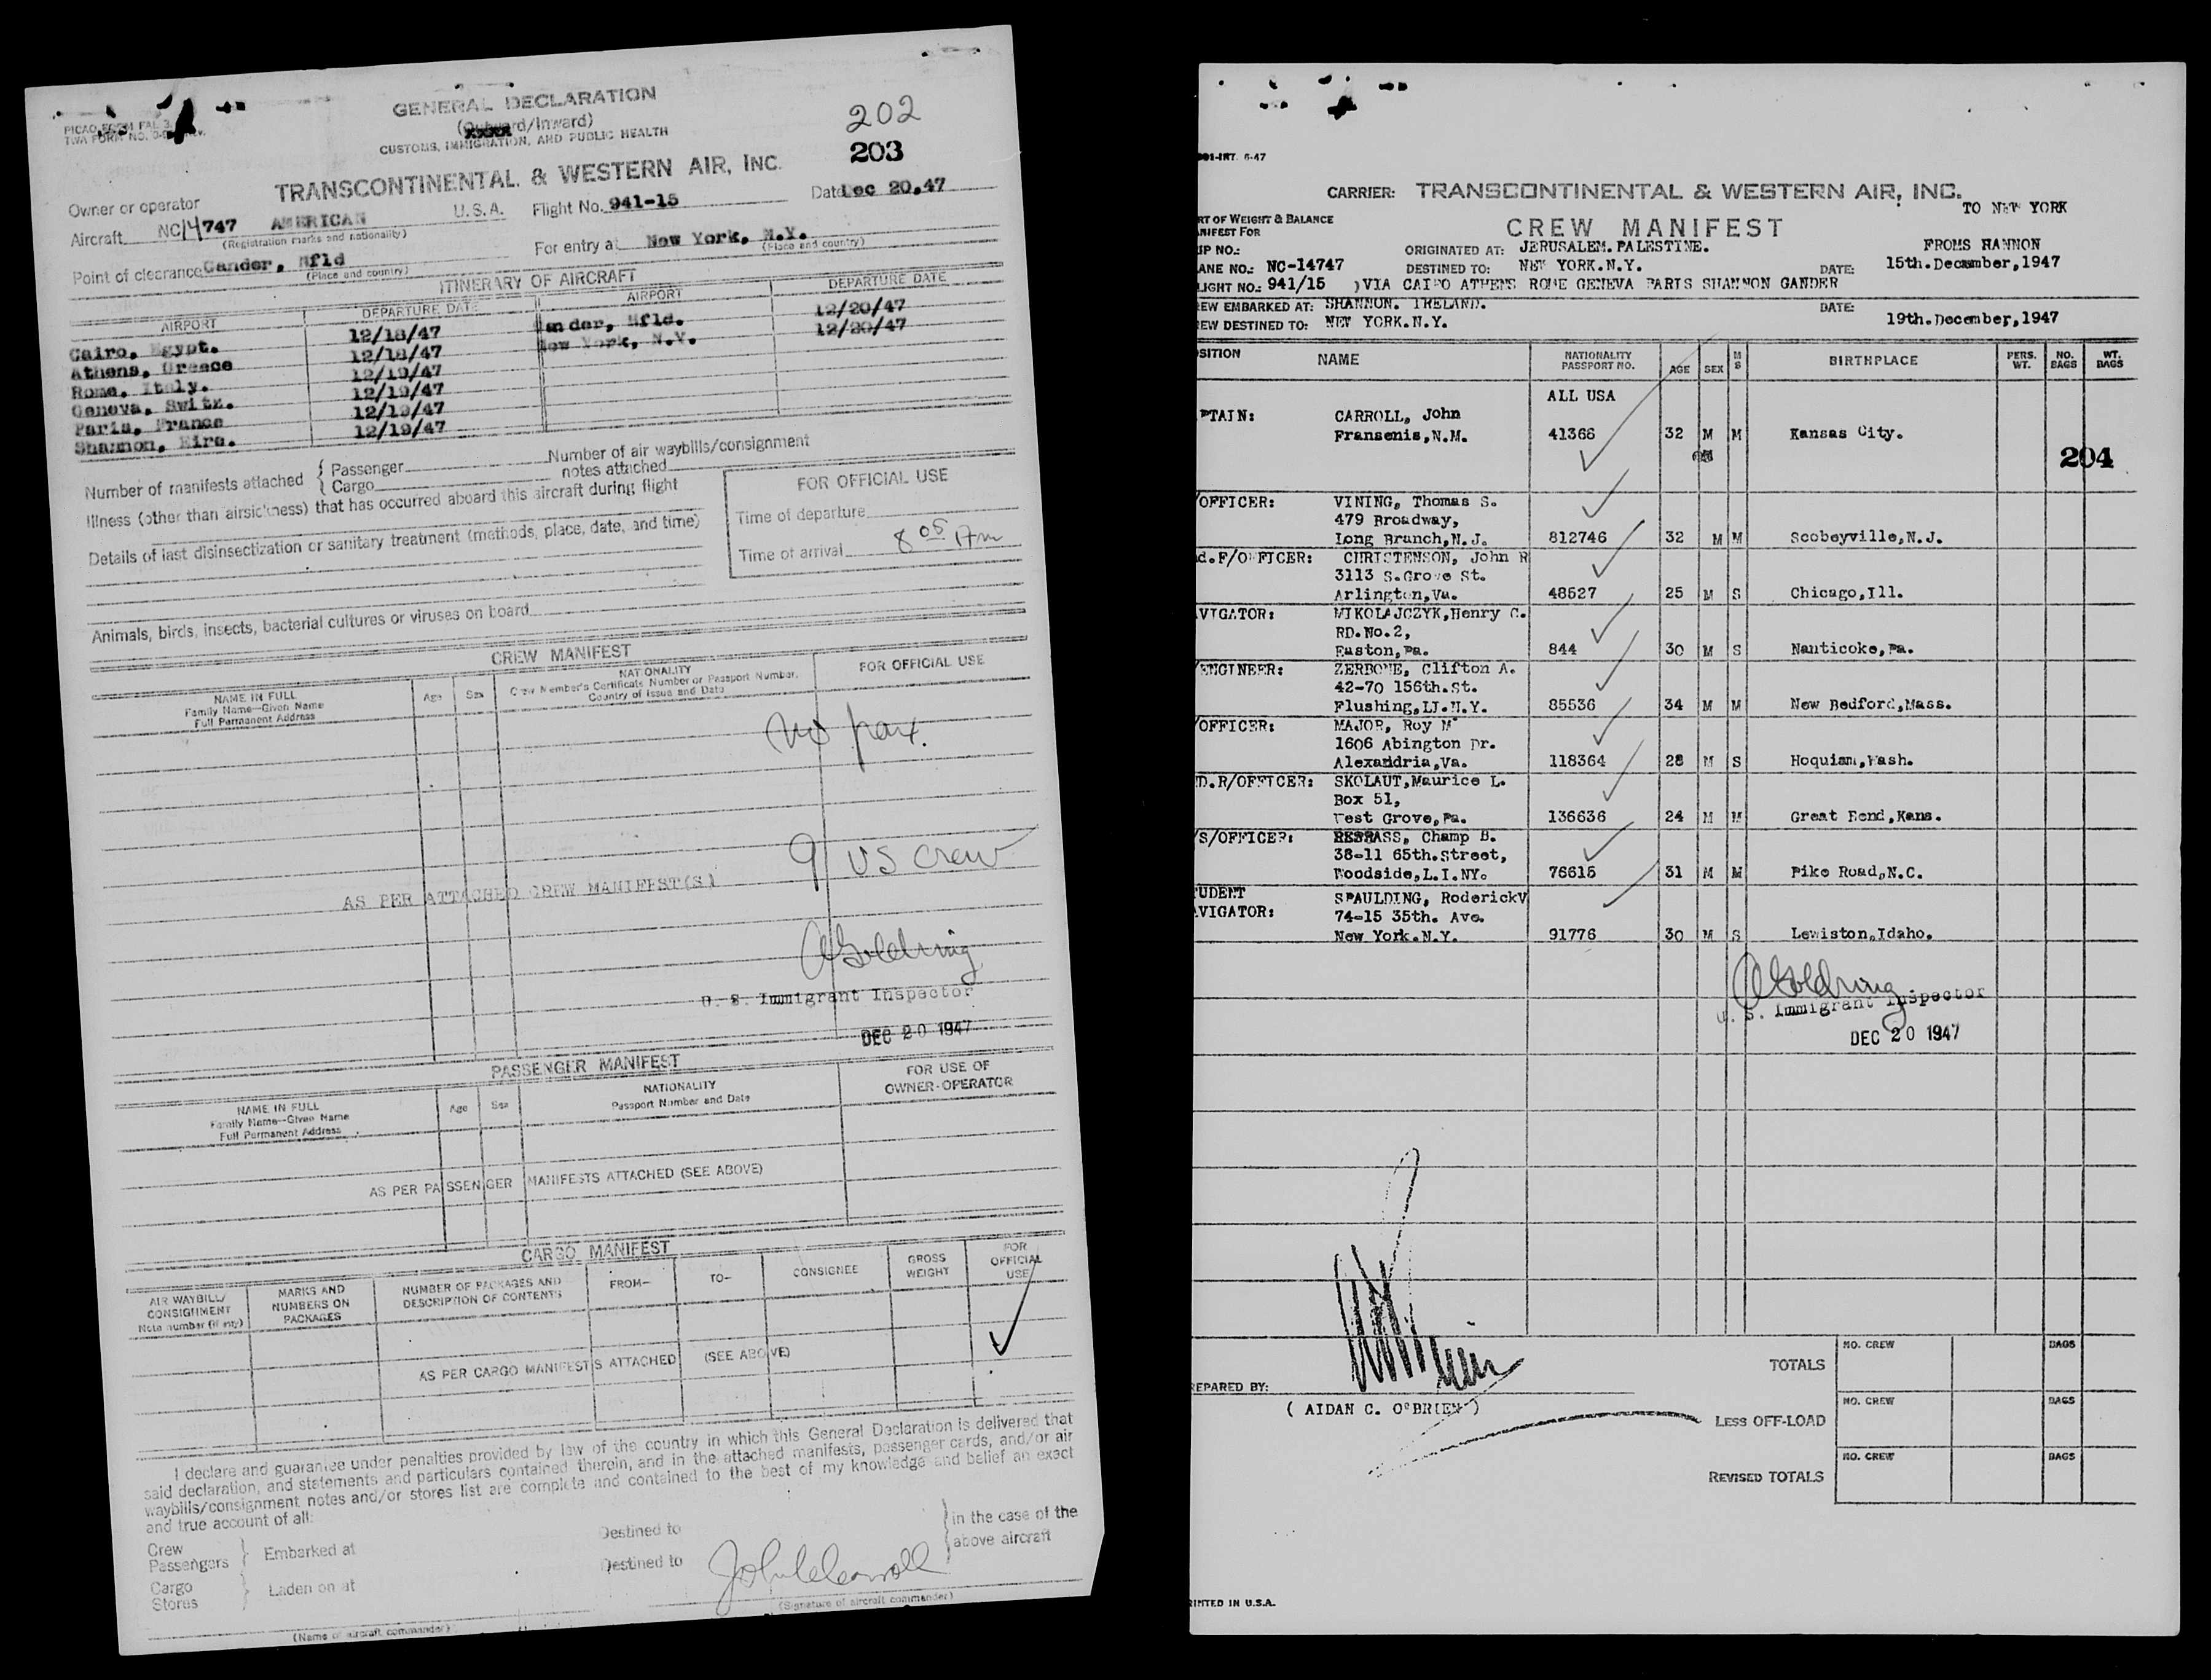 GENERAL DECLARATION
(Outward/Inward)
CUSTOMS, IMMIGRATION, AND PUBLIC HEALTH
PICAO FORM FAL 3.
TWA FORM NO.
202
203
TRANSCONTINENTAL & WESTERN AIR, INC.
Owner or operator
U.S.A. Flight No. 941-15 Date Dec 20.47
Aircraft NC 14747 AMERICAN
(Registration marks and nationality)
For entry at New York, N.Y.
(Place and country)
Point of clearance Gander, Nfld
(Place and country)
ITINERARY OF AIRCRAFT
AIRPORT DEPARTURE DATE AIRPORT DEPARTURE DATE
Cairo, Egypt. 12/18/47 Gander, Nfld. 12/20/47
Athens, Greece 12/18/47 New York, N.Y. 12/20/47
Rome, Italy. 12/19/47
Geneva, Switz. 12/19/47
Paris, France 12/19/47
Shannon, Eire. 12/19/47
Number of manifests attached { Passenger Number of air waybills/consignment
{ Cargo notes attached
Illness (other than airsickness) that has occurred aboard this aircraft during flight
Details of last disinsectization or sanitary treatment (methods, place, date, and time)
FOR OFFICIAL USE
Time of departure
Time of arrival 8 05 Am
Animals, birds, insects, bacterial cultures or viruses on board
CREW MANIFEST
NAME IN FULL
Family Name—Given Name
Full Permanent Address
Age
Sex
NATIONALITY
Crew Member's Certificate Number or Passport Number,
Country of Issue and Date
FOR OFFICIAL USE
No pax.
9 US Crew
AS PER ATTACHED CREW MANIFEST(S)
A Goldring
U. S. Immigrant Inspector
DEC 20 1947
PASSENGER MANIFEST
NAME IN FULL
Family Name—Given Name
Full Permanent Address
Age
Sex
NATIONALITY
Passport Number and Date
FOR USE OF
OWNER-OPERATOR
AS PER PASSENGER MANIFESTS ATTACHED (SEE ABOVE)
CARGO MANIFEST
AIR WAYBILL/
CONSIGNMENT
Note number (if any)
MARKS AND
NUMBERS ON
PACKAGES
NUMBER OF PACKAGES AND
DESCRIPTION OF CONTENTS
FROM—
TO—
CONSIGNEE
GROSS
WEIGHT
FOR
OFFICIAL
USE
AS PER CARGO MANIFESTS ATTACHED (SEE ABOVE)
I declare and guarantee under penalties provided by law of the country in which this General Declaration is delivered that
said declaration, and statements and particulars contained therein, and in the attached manifests, passenger cards, and/or air
waybills/consignment notes and/or stores list are complete and contained to the best of my knowledge and belief an exact
and true account of all:
Crew
Passengers } Embarked at Destined to } in the case of the
Cargo
Stores } Laden on at Destined to above aircraft
John C Carroll
(Signature of aircraft commander)
(Name of aircraft commander)
001-INT. 6-47
CARRIER: TRANSCONTINENTAL & WESTERN AIR, INC.
TO NEW YORK
RT OF WEIGHT & BALANCE
ANIFEST FOR
CREW MANIFEST
IP NO.: ORIGINATED AT: JERUSALEM.PALESTINE. FROMS HANNON
ANE NO.: NC-14747 DESTINED TO: NEW YORK.N.Y. DATE: 15th.December,1947
LIGHT NO.: 941/15 )VIA CAIRO ATHENS ROME GENEVA PARIS SHANNON GANDER
EW EMBARKED AT: SHANNON. IRELAND. DATE:
EW DESTINED TO: NEW YORK.N.Y. 19th.December,1947
SITION NAME NATIONALITY PASSPORT NO. AGE SEX M S BIRTHPLACE PERS. WT. NO. BAGS WT. BAGS
ALL USA
PTAIN: CARROLL, John
Fransenis,N.M. 41366 32 M M Kansas City.
204
/OFFICER: VINING, Thomas S.
479 Broadway,
Long Branch,N.J. 812746 32 M M Scobeyville,N.J.
d.F/OFFICER: CHRISTENSON, John R
3113 S.Grove St.
Arlington,Va. 48527 25 M S Chicago,Ill.
AVIGATOR: MIKOLAJCZYK,Henry C.
RD.No.2,
Easton,Pa. 844 30 M S Nanticoke,Pa.
/ENGINEER: ZERBONE, Clifton A.
42-70 156th.St.
Flushing,LI.N.Y. 85536 34 M M New Bedford,Mass.
/OFFICER: MAJOR, Roy M
1606 Abington Dr.
Alexandria,Va. 118364 28 M S Hoquiam,Wash.
D.R/OFFICER: SKOLAUT,Maurice L.
Box 51,
West Grove,Pa. 136636 24 M M Great Bend,Kans.
/S/OFFICER: Champ B.
38-11 65th.Street,
Woodside,L.I.NY. 76615 31 M M Pike Road,N.C.
UDENT SPAULDING, RoderickV
AVIGATOR: 74-15 35th. Ave.
New York.N.Y. 91776 30 M S Lewiston,Idaho.
A Goldring
U. S. Immigrant Inspector
DEC 20 1947
EPARED BY:
( AIDAN C. O'BRIEN )
TOTALS NO. CREW BAGS
LESS OFF-LOAD NO. CREW BAGS
REVISED TOTALS NO. CREW BAGS
RINTED IN U.S.A.